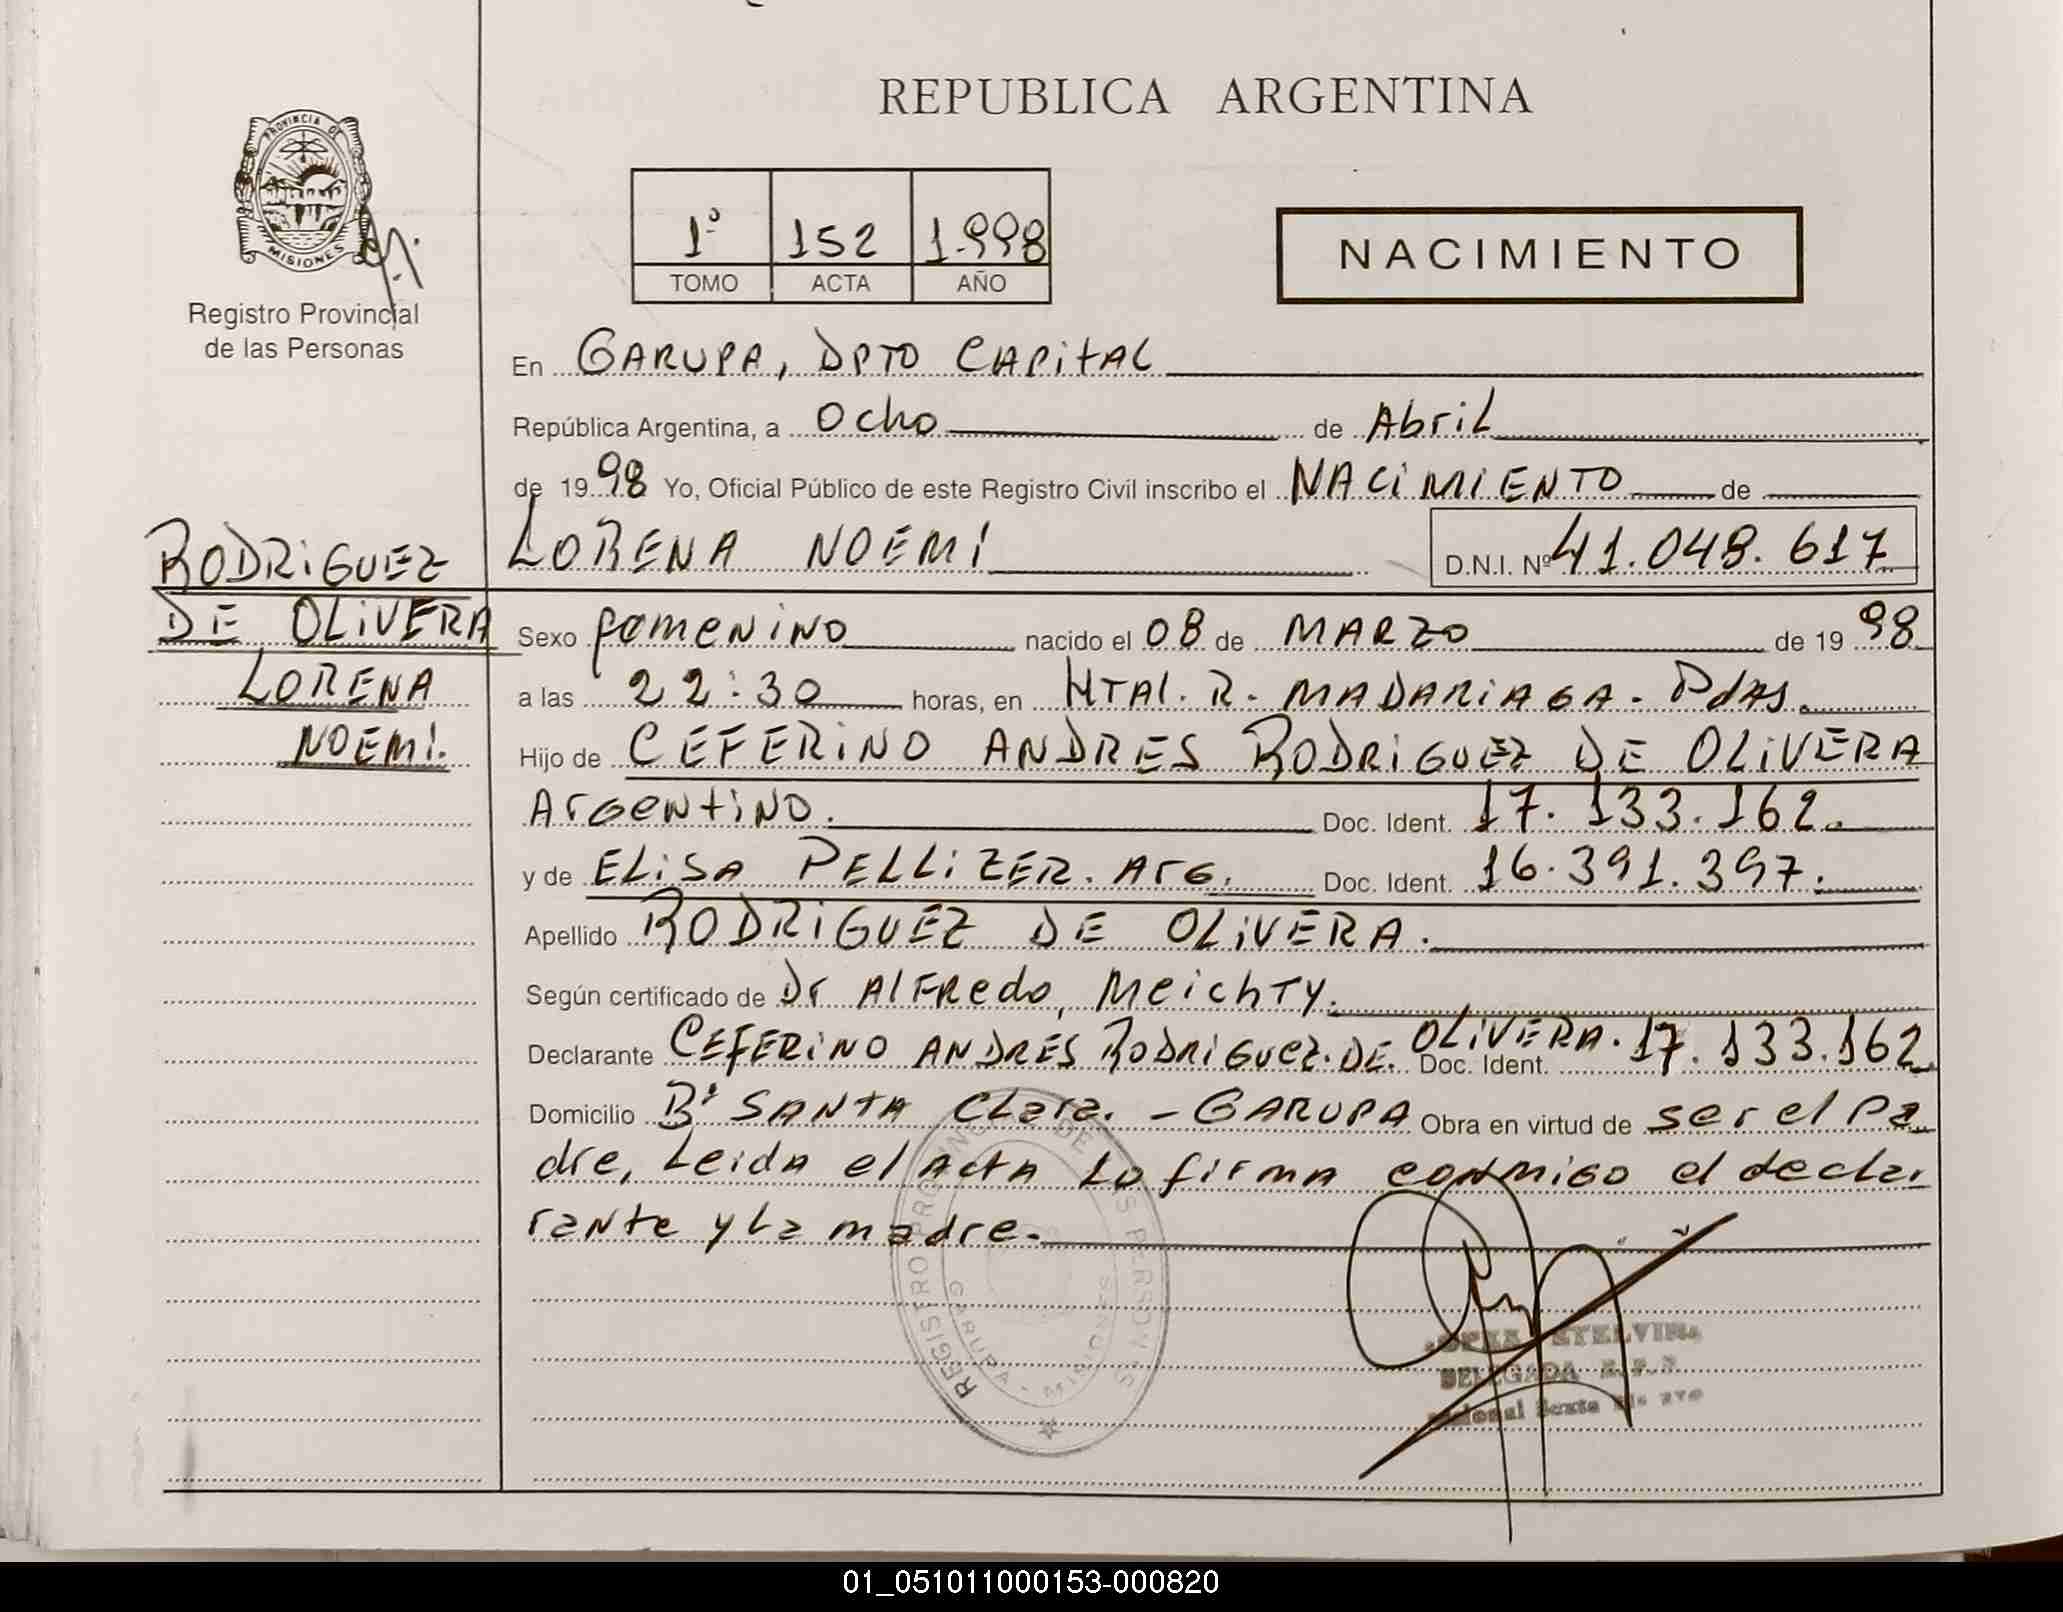 REPUBLICA ARGENTINA
PROVINCIA DE
MISIONES
Registro Provincial
de las Personas
1º 152 1.998
TOMO ACTA AÑO
NACIMIENTO
En GARUPA, DPTO CAPitAL
República Argentina, a Ocho de Abril
de 19 98 Yo, Oficial Público de este Registro Civil inscribo el NACiMIENTO de
RODRiGUEZ
DE OLiVERA
LORENA
NOEMi.
LORENA NOEMi D.N.I. Nº 41.048.617
Sexo femenino nacido el 08 de MARZO de 19 98
a las 22:30 horas, en HTAl. R. MADARiAGA. PdAS.
Hijo de CEFERiNO ANDRES RODRiGUEZ DE OLiVERA
ArGentiNO. Doc. Ident. 17.133.162.
y de ELiSA PELLiZER. ArG. Doc. Ident. 16.391.397.
Apellido RODRiGUEZ DE OLiVERA.
Según certificado de Dr AlFRedo, MeichTY.
Declarante CEFERiNO ANDRES RODRiGUEZ.DE. OLiVERA. Doc. Ident. 17.133.162
Domicilio Bº SANTA Clara. - GARUPA Obra en virtud de ser el Pa
dre, Leida el acta Lo firma conmigo el decla
rante y La madre.
REGISTRO PROVINCIAL DE LAS PERSONAS
GARUPA - MISIONES
ETELVINA
DELEGADA
01_051011000153-000820